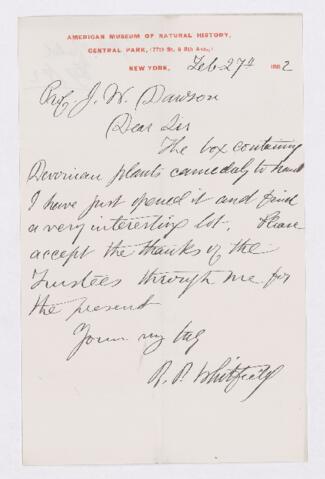 AMERICAN MUSEUM OF NATURAL HISTORY,
CENTRAL PARK, (77th St. & 8th Ave.,)
NEW YORK, Feb 27th 1882
Prof J. W. Dawson
Dear Sir
The box containing
Devonian plants came duly to hand
I have just opened it and find
a very interesting lot. Please
accept the thanks of the
Trustees through me for
the present
Yours
R. P. Whitfield